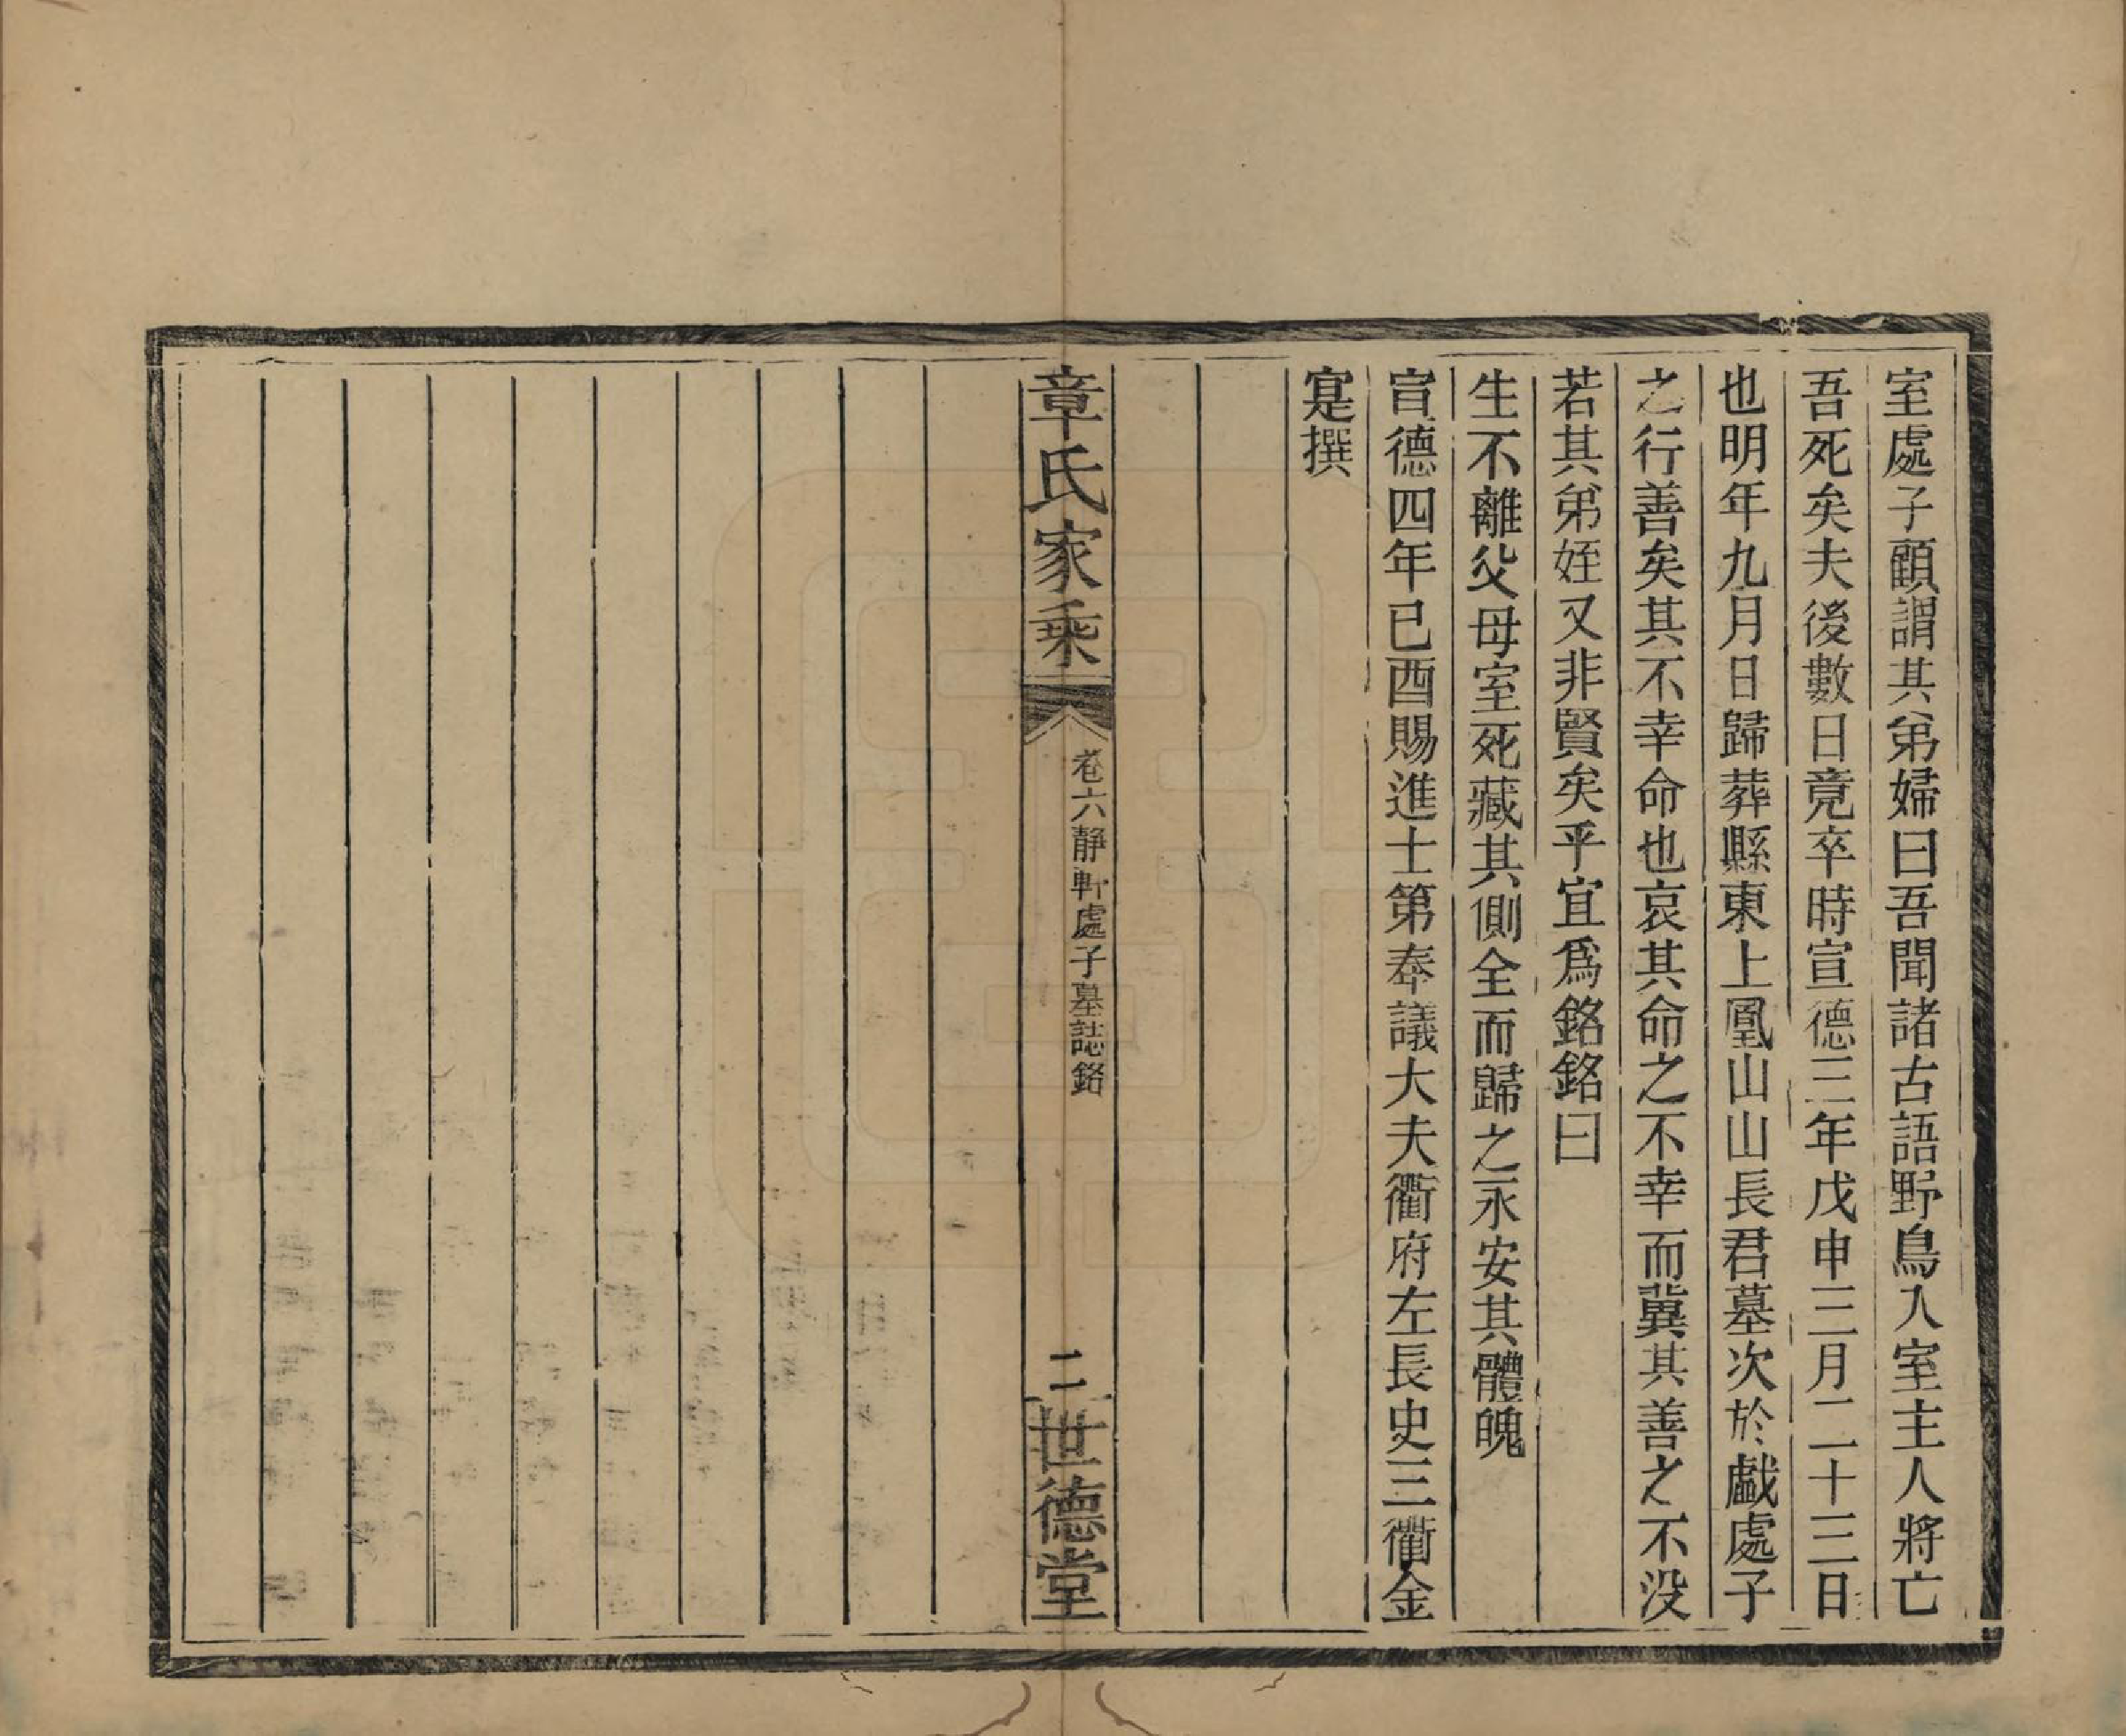 室處子顧謂其弟婦曰吾聞諸古語野鳥入室主人將亡
吾死矣夫後數日竟卒時宣德三年戊申三月二十三日
也明年九月日歸葬縣東上凰山山長君墓次於戱處子
之行善矣其不幸命也哀其命之不幸而冀其善之不没
若其弟姪又非賢矣乎宜爲銘銘曰
生不離父母室死藏其側全而歸之永安其體魄
宣德四年已酉賜進士第奉議大夫衢府左長史三衢金
寔撰
章氏家乘
卷六靜軒處子墓誌銘
二
世德堂